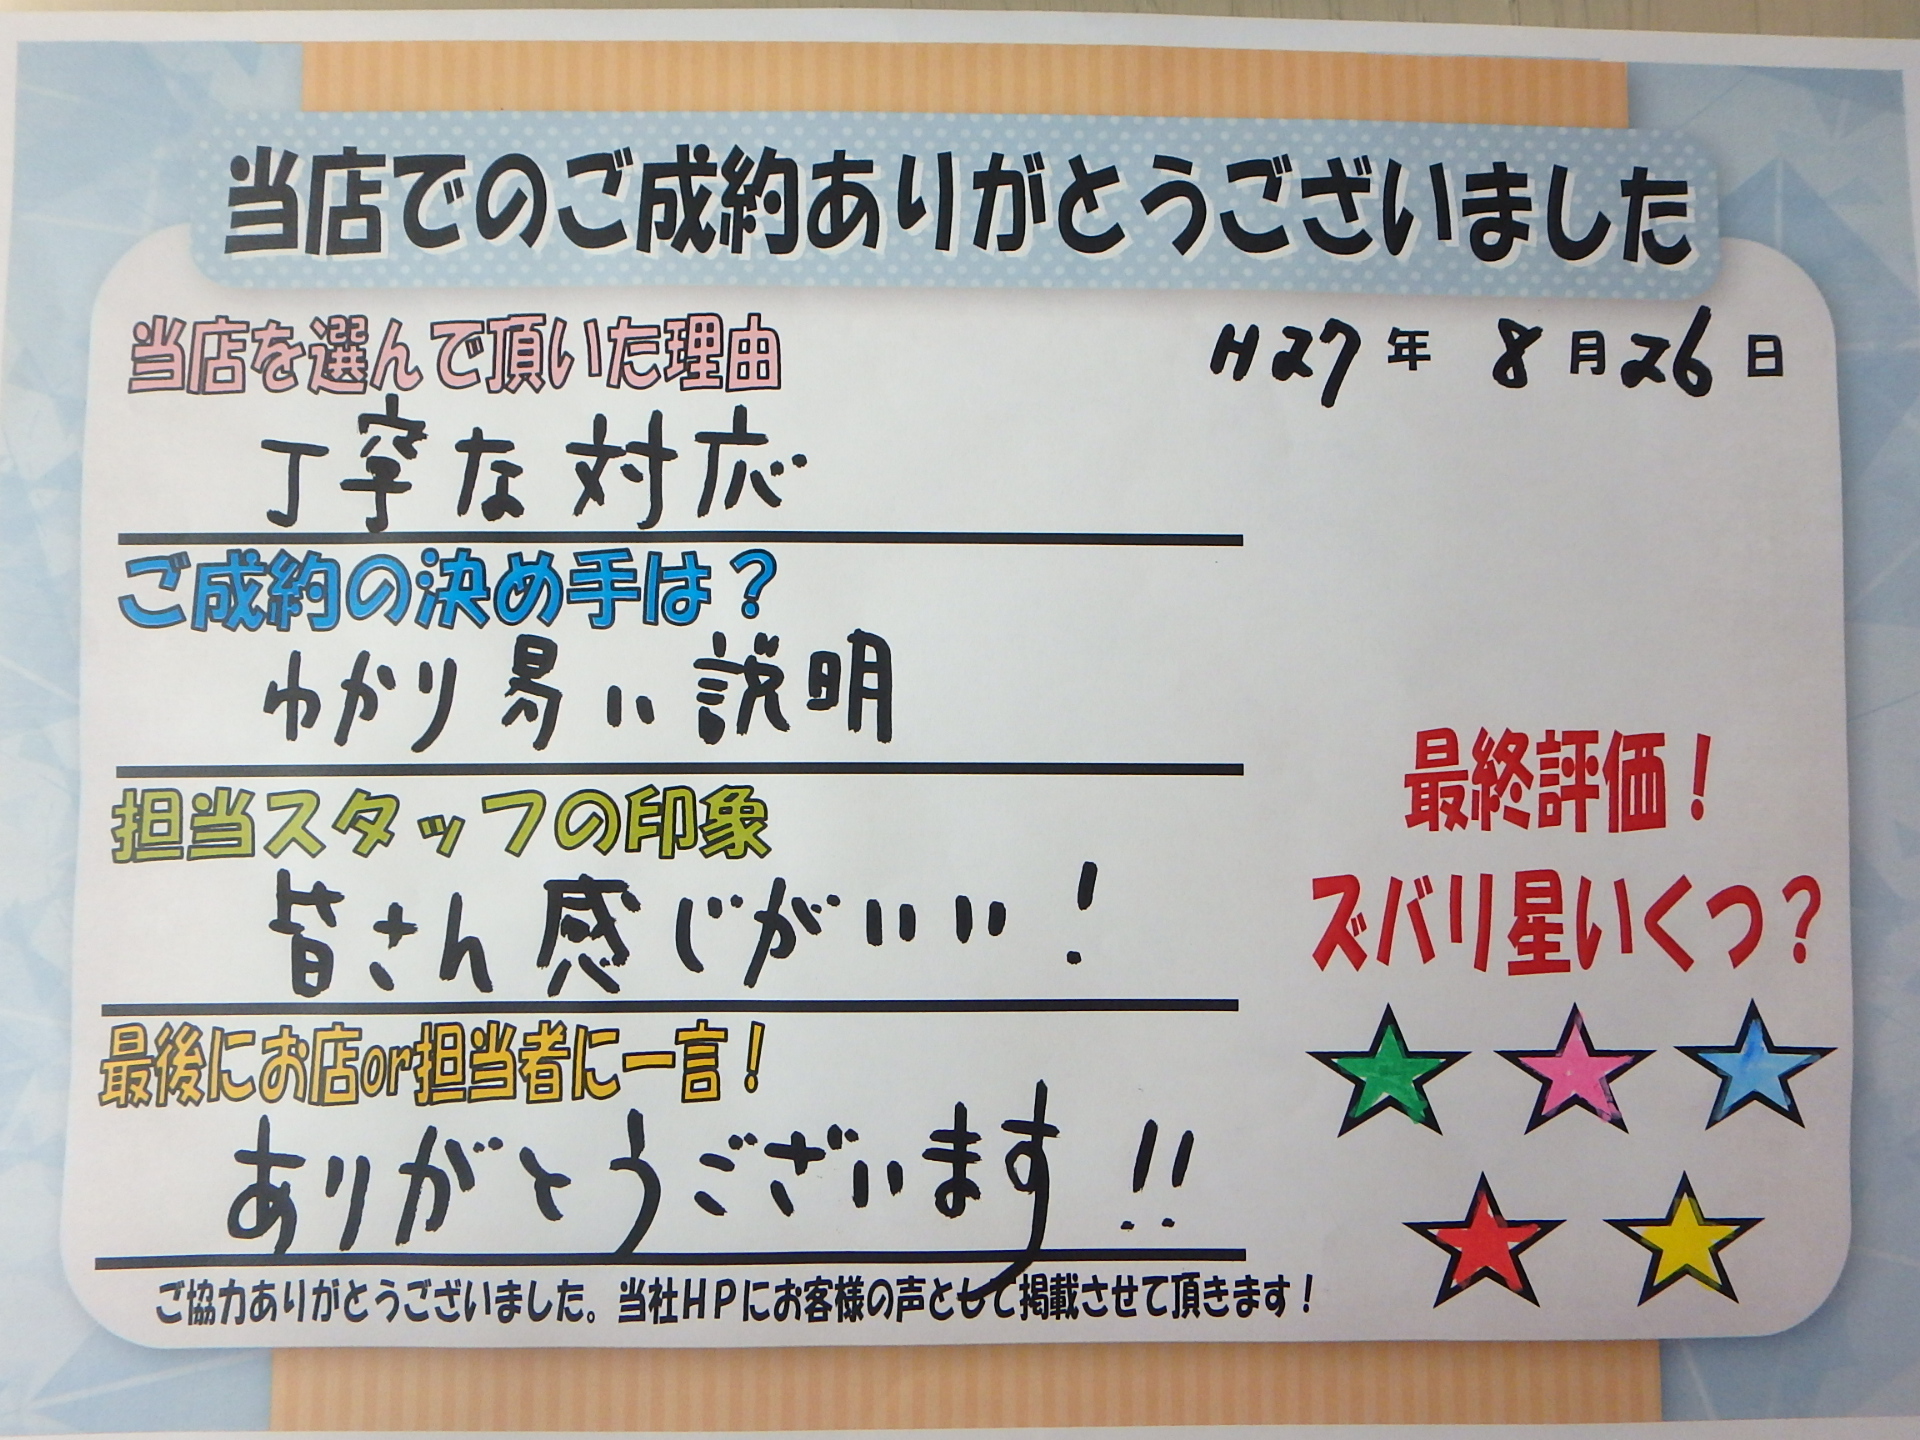 当店でのご成約ありがとうございました
H27年 8月26日
当店を選んで頂いた理由
丁寧な対応
ご成約の決め手は？
わかり易い説明
担当スタッフの印象
皆さん感じがいい！
最後にお店or担当者に一言！
ありがとうございます!!
最終評価！
ズバリ星いくつ？
ご協力ありがとうございました。当社HPにお客様の声として掲載させて頂きます！